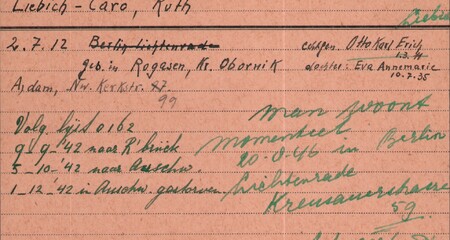 Liebich - Caro, Ruth
2.7.12 Berlin Lichtenrade
geb. in Rogasen, Kr. Obornik
A/dam, Nw. Kerkstr. 87
99
echtgen. Otto Karl Erich
dochter: Eva Annemarie
10.7.35
Volg. lijst 0162
9-9-'42 naar R'brück
5-10-'42 naar Auschw.
1-12-'42 in Auschw. gestorven.
man woont
momenteel
20-8-46 in Berlin
Lichtenrade
59